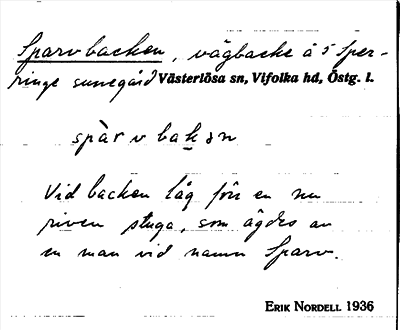 Sparvbacken, vägbacke å S Sper-
ringe sunnegård Västerlösa sn, Vifolka hd, Östg. l.
spàrvbakən
Vid backen låg förr en nu
riven stuga, som ägdes av
en man vid namn Sparv.
ERIK NORDELL 1936